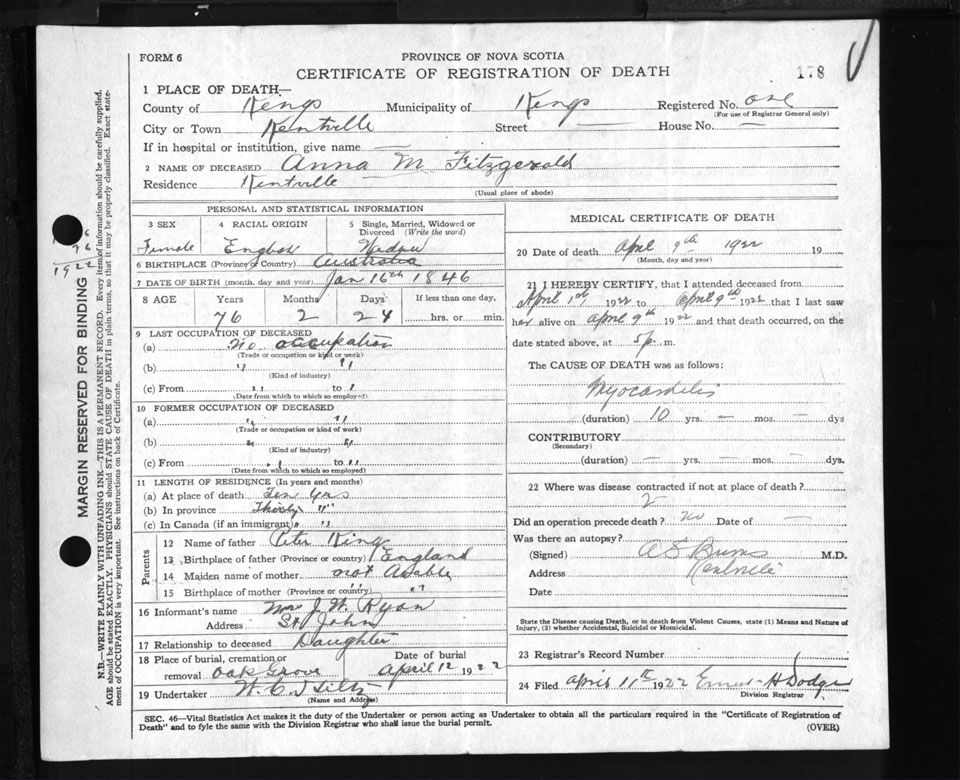 FORM 6
PROVINCE OF NOVA SCOTIA
CERTIFICATE OF REGISTRATION OF DEATH
178
1 PLACE OF DEATH—
County of Kings Municipality of Kings Registered No. one
(For use of Registrar General only)
City or Town Kentville Street — House No. —
If in hospital or institution, give name —
2 NAME OF DECEASED Anna M Fitzgerald
Residence Kentville
(Usual place of abode)
PERSONAL AND STATISTICAL INFORMATION
3 SEX 4 RACIAL ORIGIN 5 Single, Married, Widowed or Divorced (Write the word)
Female English Widow
6 BIRTHPLACE (Province or Country) Australia
7 DATE OF BIRTH (month, day and year) Jan 16th 1846
8 AGE Years Months Days If less than one day,
76 2 24 hrs. or min.
9 LAST OCCUPATION OF DECEASED
(a) no occupation
(Trade or occupation or kind or work)
(b) " "
(Kind of industry)
(c) From " to "
(Date from which to which so employed)
10 FORMER OCCUPATION OF DECEASED
(a) " "
(Trade or occupation or kind of work)
(b) " "
(Kind of industry)
(c) From " to "
(Date from which to which so employed)
11 LENGTH OF RESIDENCE (In years and months)
(a) At place of death Ten yrs
(b) In province Thirty "
(c) In Canada (if an immigrant) " "
Parents
12 Name of father Peter King
13 Birthplace of father (Province or country) England
14 Maiden name of mother not
15 Birthplace of mother (Province or country) "
16 Informant's name Mrs J. W. Ryan
Address St John
17 Relationship to deceased Daughter
18 Place of burial, cremation or removal Oak Grove Date of burial April 12 1922
19 Undertaker W. C.
(Name and Address)
MEDICAL CERTIFICATE OF DEATH
20 Date of death April 9th 1922 19
(Month, day and year)
21 I HEREBY CERTIFY, that I attended deceased from
April 1st 1922 to April 9th 1922 that I last saw
her alive on April 9th 1922 and that death occurred, on the
date stated above, at 5 p. m.
The CAUSE OF DEATH was as follows:
Myocarditis
(duration) 10 yrs. — mos. — dys
CONTRIBUTORY
(Secondary)
(duration) — yrs. — mos. — dys.
22 Where was disease contracted if not at place of death?
?
Did an operation precede death? no Date of —
Was there an autopsy?
(Signed) A E Burns M.D.
Address Kentville
Date
State the Disease causing Death, or in death from Violent Causes, state (1) Means and Nature of
Injury, (2) whether Accidental, Suicidal or Homicidal.
23 Registrar's Record Number
24 Filed April 11th 1922 Ernest H Dodge
Division Registrar
SEC. 46—Vital Statistics Act makes it the duty of the Undertaker or person acting as Undertaker to obtain all the particulars required in the "Certificate of Registration of
Death" and to fyle the same with the Division Registrar who shall issue the burial permit.
(OVER)
MARGIN RESERVED FOR BINDING
76
1922
N.B.—WRITE PLAINLY WITH UNFADING INK—THIS IS A PERMANENT RECORD. Every item of information should be carefully supplied.
AGE should be stated EXACTLY. PHYSICIANS should STATE CAUSE OF DEATH in plain terms, so that it may be properly classified. Exact state-
ment of OCCUPATION is very important. See instructions on back of Certificate.